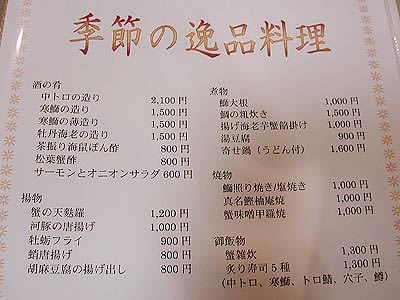 季節の逸品料理
酒の肴
中トロの造り 2,100円
寒鰤の造り 1,500円
寒鰤の薄造り 1,500円
牡丹海老の造り 1,500円
茶振り海鼠ぽん酢 800円
松葉蟹酢 800円
サーモンとオニオンサラダ 600円
揚物
蟹の天麩羅 1,200円
河豚の唐揚げ 1,000円
牡蛎フライ 900円
蛸唐揚げ 800円
胡麻豆腐の揚げ出し 800円
煮物
鰤大根 1,000円
鯛の粗炊き 1,500円
揚げ海老芋蟹餡掛け 1,000円
湯豆腐 900円
寄せ鍋(うどん付) 1,600円
焼物
鰤照り焼き/塩焼き 1,000円
真名鰹柚庵焼 1,000円
蟹味噌甲羅焼 1,000円
御飯物
蟹雑炊 1,300円
炙り寿司5種 1,300円
(中トロ、寒鰤、トロ鯖、穴子、鱒)